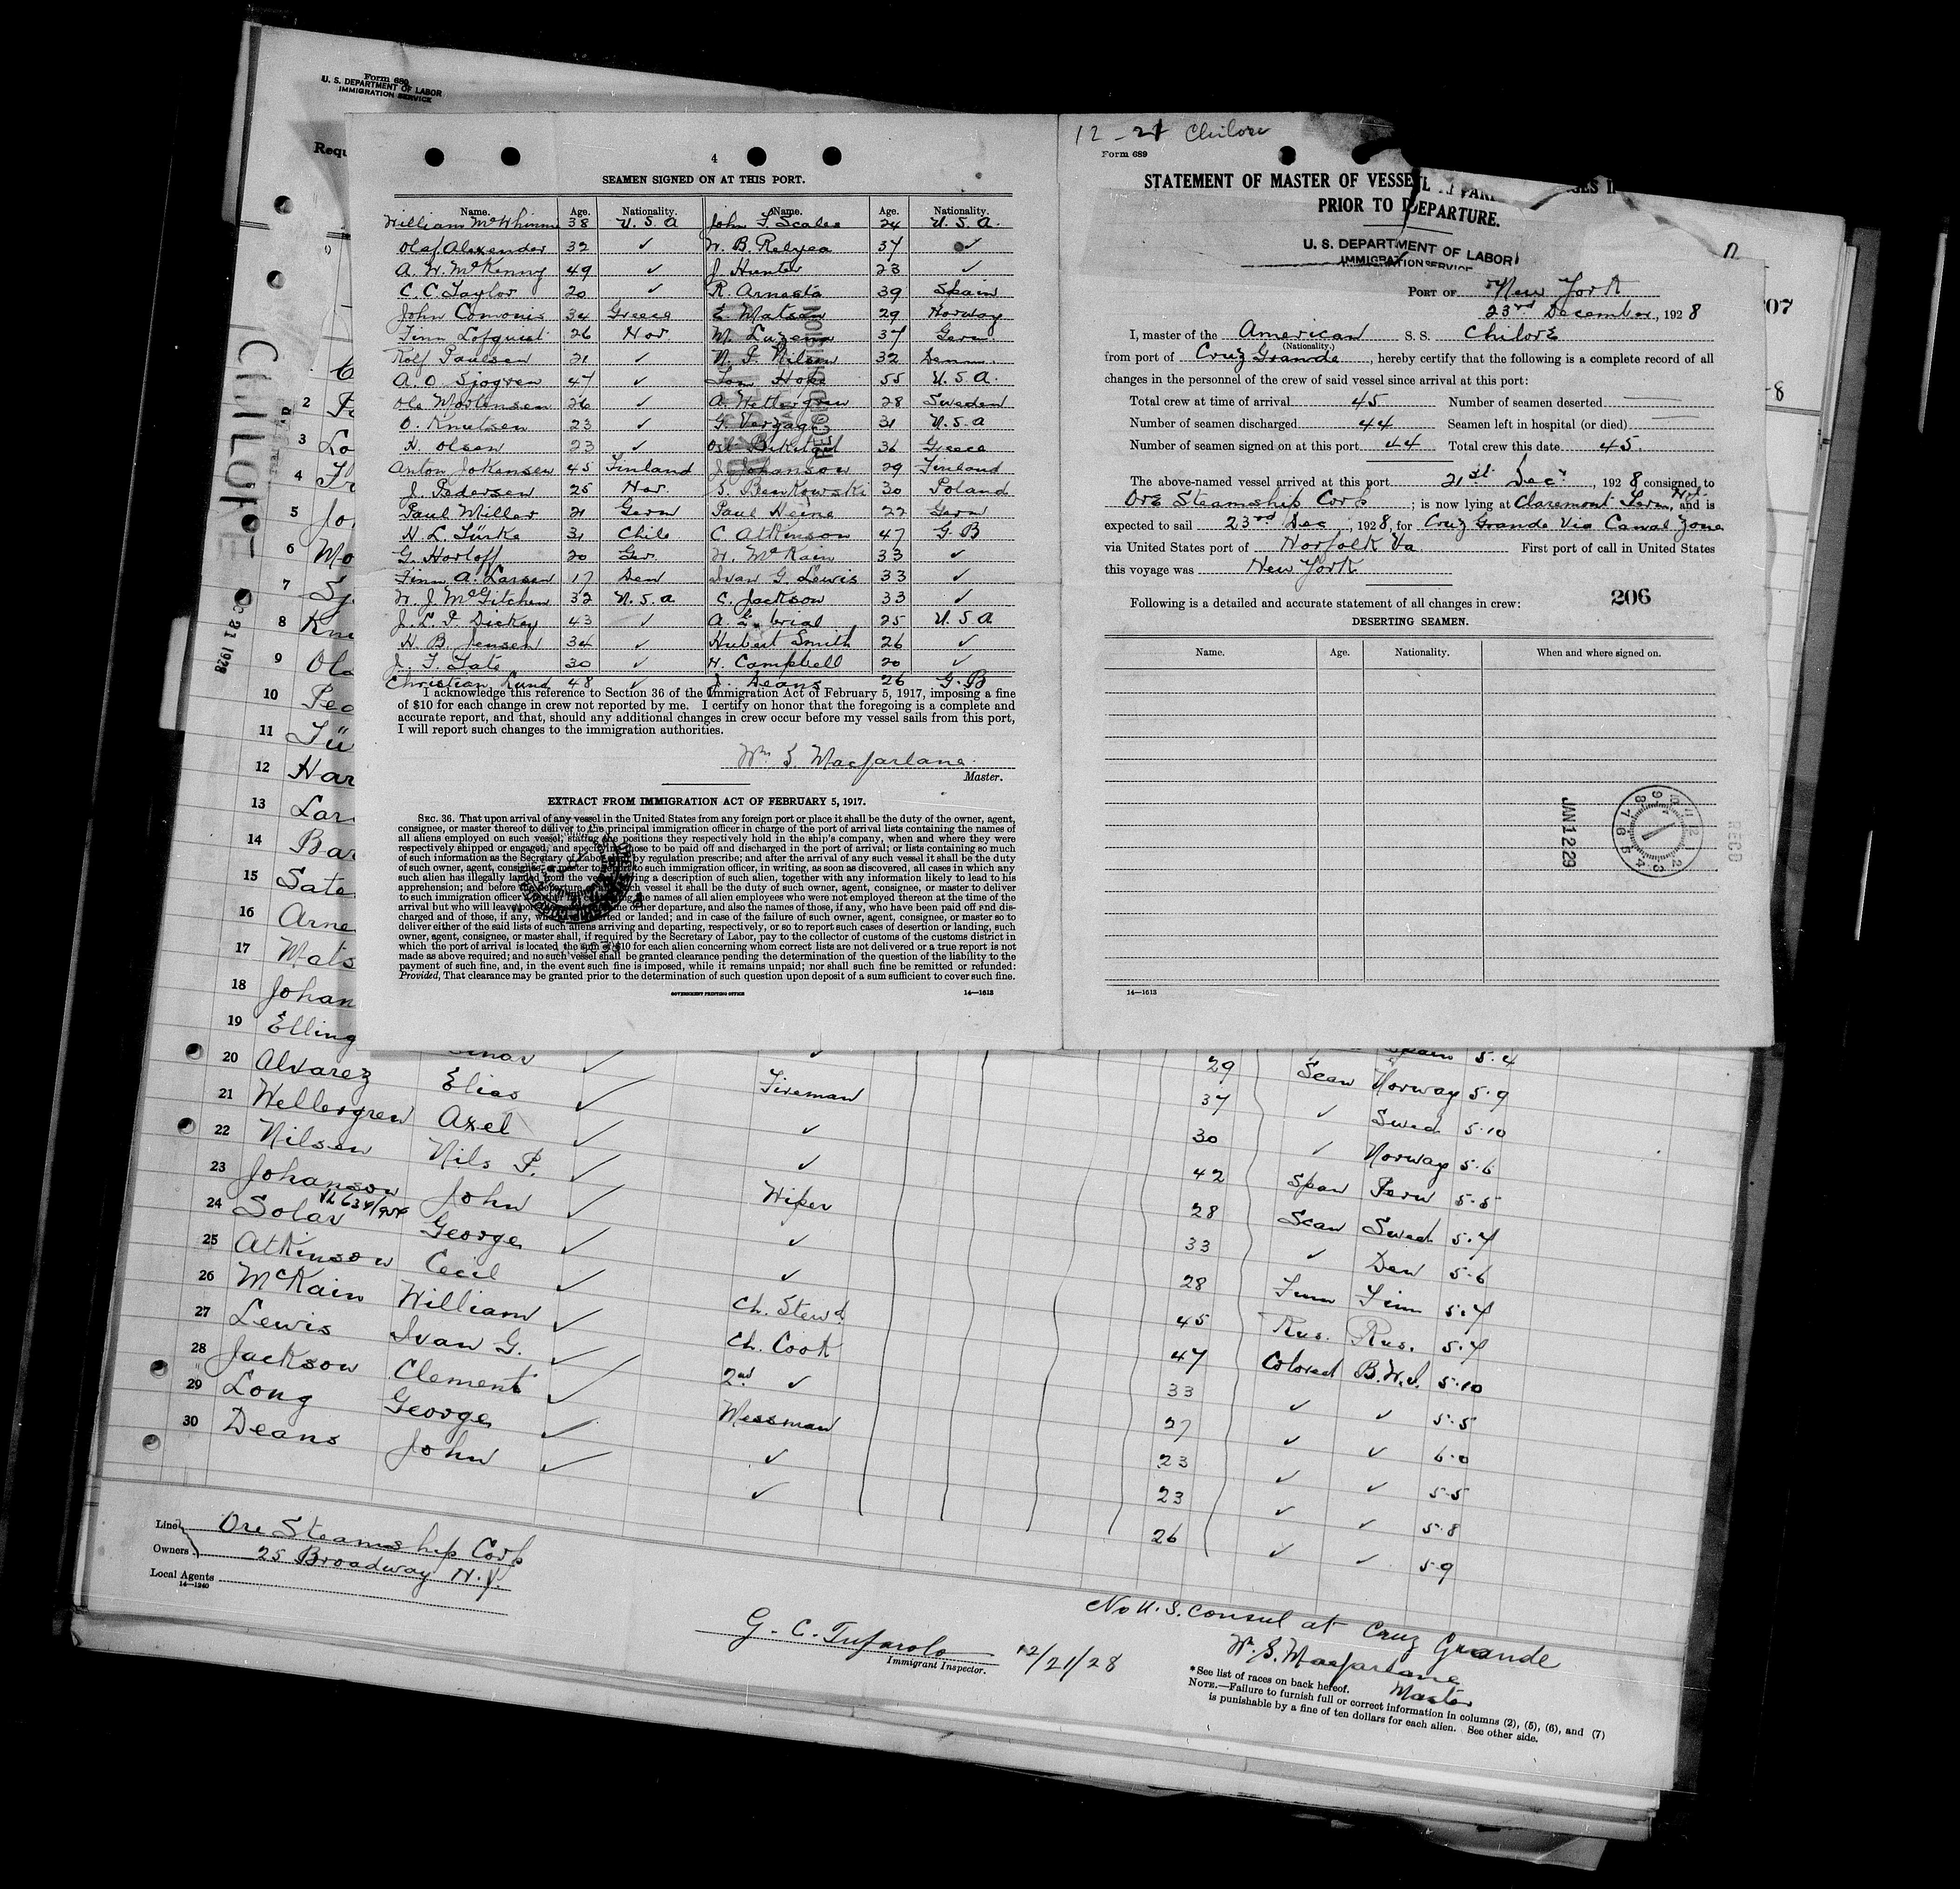 Form 689
U. S. DEPARTMENT OF LABOR
IMMIGRATION SERVICE
4
SEAMEN SIGNED ON AT THIS PORT.
Name. Age. Nationality. Name. Age. Nationality.
William McWhinnie 38 U. S. A John F. Scales 24 U. S. A.
Olaf Alexander 32 ✓ W. B. Relyea 37 ✓
A. W. McKenny 49 ✓ J. Hunter 23 ✓
C. C. Taylor 20 ✓ R. Arnesta 39 Spain
John Comonis 34 Greece E. Matsen 29 Norway
Finn Lofquist 26 Nor. M. Luzena 37 Germ.
Rolf Paulsen 21 ✓ N. P. Nilsen 32 Denm.
A. O. Sjogren 47 ✓ Tom Hope 55 U. S. A.
Ole Mortensen 26 ✓ A. Wettergren 28 Sweden
O. Knutsen 23 ✓ G. 31 U. S. a
H. Olsen 23 ✓ 36 Greece
Anton Johensen 45 Finland J. Johanson 29 Finland
J. Pedersen 25 Nor. S. Benkowski 30 Poland
Paul Miller 21 Germ Paul Heine 22 Germ
H. L. Türke 31 Chile C. Atkinson 47 G. B
G. Harloff 20 Ger. W. McKain 33 ✓
Finn A. Larsen 17 Den Ivan G. Lewis 33 ✓
W. J. McGitchen 32 U. S. a C. Jackson 33 ✓
J. L. P. Dickey 43 ✓ A. 25 U. S. A
H. B. Jensen 34 ✓ Hubert Smith 26 ✓
J. F. Tate 30 ✓ H. Campbell 20 ✓
Christian Lund 48 ✓ J. Deans 26 G. B
I acknowledge this reference to Section 36 of the Immigration Act of February 5, 1917, imposing a fine
of $10 for each change in crew not reported by me. I certify on honor that the foregoing is a complete and
accurate report, and that, should any additional changes in crew occur before my vessel sails from this port,
I will report such changes to the immigration authorities.
Wm S. Macfarlane
Master.
EXTRACT FROM IMMIGRATION ACT OF FEBRUARY 5, 1917.
SEC. 36. That upon arrival of any vessel in the United States from any foreign port or place it shall be the duty of the owner, agent,
consignee, or master thereof to deliver to the principal immigration officer in charge of the port of arrival lists containing the names of
all aliens employed on such vessel, stating the positions they respectively hold in the ship's company, when and where they were
respectively shipped or engaged, and specifying those to be paid off and discharged in the port of arrival; or lists containing so much
of such information as the Secretary of Labor shall by regulation prescribe; and after the arrival of any such vessel it shall be the duty
of such owner, agent, consignee, or master to report to such immigration officer, in writing, as soon as discovered, all cases in which any
such alien has illegally landed from the vessel, giving a description of such alien, together with any information likely to lead to his
apprehension; and before the departure of any such vessel it shall be the duty of such owner, agent, consignee, or master to deliver
to such immigration officer a further list containing the names of all alien employees who were not employed thereon at the time of the
arrival but who will leave port thereon at the time of her departure, and also the names of those, if any, who have been paid off and dis-
charged and of those, if any, who have deserted or landed; and in case of the failure of such owner, agent, consignee, or master so to
deliver either of the said lists of such aliens arriving and departing, respectively, or so to report such cases of desertion or landing, such
owner, agent, consignee, or master shall, if required by the Secretary of Labor, pay to the collector of customs of the customs district in
which the port of arrival is located the sum of $10 for each alien concerning whom correct lists are not delivered or a true report is not
made as above required; and no such vessel shall be granted clearance pending the determination of the question of the liability to the
payment of such fine, and, in the event such fine is imposed, while it remains unpaid; nor shall such fine be remitted or refunded:
Provided, That clearance may be granted prior to the determination of such question upon deposit of a sum sufficient to cover such fine.
GOVERNMENT PRINTING OFFICE 14—1613
12 - 21 Chilore
Form 689
STATEMENT OF MASTER OF VESSEL
PRIOR TO DEPARTURE.
U. S. DEPARTMENT OF LABOR
IMMIGRATION SERVICE
PORT OF New York
23rd December, 1928
I, master of the American S. S. Chilore
(Nationality.)
from port of Cruz Grande, hereby certify that the following is a complete record of all
changes in the personnel of the crew of said vessel since arrival at this port:
Total crew at time of arrival 45 Number of seamen deserted —
Number of seamen discharged 44 Seamen left in hospital (or died) —
Number of seamen signed on at this port 44 Total crew this date 45.
The above-named vessel arrived at this port 21st Dec., 1928 consigned to
Ore Steamship Corp; is now lying at Claremont Term, N.J. and is
expected to sail 23rd Dec, 1928, for Cruz Grande Via Canal Zone
via United States port of Norfolk Va First port of call in United States
this voyage was New York
206
Following is a detailed and accurate statement of all changes in crew:
DESERTING SEAMEN.
Name. Age. Nationality. When and where signed on.
JAN 12 29
RECD
14—1613
CHILORE
21 1928
2
3 Lo
4
5 Jo
6 Mo
7 Sj
8 Knu
9 Ole
10 Ped
11 Tü
12 Har
13 Lar
14 Bar
15 Sate
16 Arne
17 Mats
18 Johan
19 Elling Einar ✓ ✓ 29 Scan Norway 5.9
20 Alvarez Elias ✓ Fireman
21 Wellergren Axel ✓ ✓
22 Nilsen Nils P. ✓ ✓
23 Johanson John ✓ Wiper
24 Solar George ✓ ✓
25 Atkinson Cecil ✓ ✓
26 McKain William ✓ Ch. Stewd
27 Lewis Ivan G. ✓ Ch. Cook
28 Jackson Clement ✓ 2nd ✓
29 Long George ✓ Messman
30 Deans John ✓ ✓
✓
Spain 5.4
37 ✓ Swed 5.10
30 ✓ Norway 5.6
42 Span Peru 5.5
28 Scan Swed 5.7
33 ✓ Den 5.6
28 Finn Finn 5.7
45 Rus. Rus. 5.7
47 Colored B.W.I. 5.10
33 ✓ ✓ 5.5
27 ✓ ✓ 6.0
23 ✓ ✓ 5.5
23 ✓ ✓ 5.8
26 ✓ ✓ 5.9
Line Ore Steamship Corp
Owners 25 Broadway N.Y.
Local Agents
14—1240
G. C. Tufarolo 12/21/28
Immigrant Inspector.
No U. S. Consul at Cruz Grande
W. S. Macfarlane
Master
*See list of races on back hereof.
NOTE.—Failure to furnish full or correct information in columns (2), (5), (6), and (7)
is punishable by a fine of ten dollars for each alien. See other side.